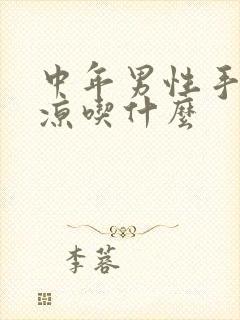 中年男性手
凉喫什麼
李蓉